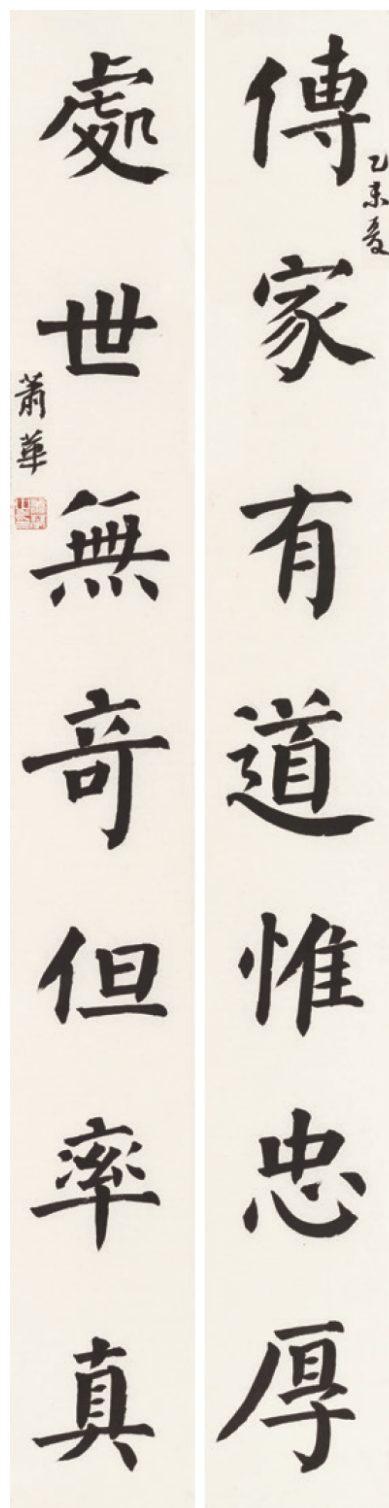 傳家有道惟忠厚
乙未夏
處世無奇但率真
蕭華